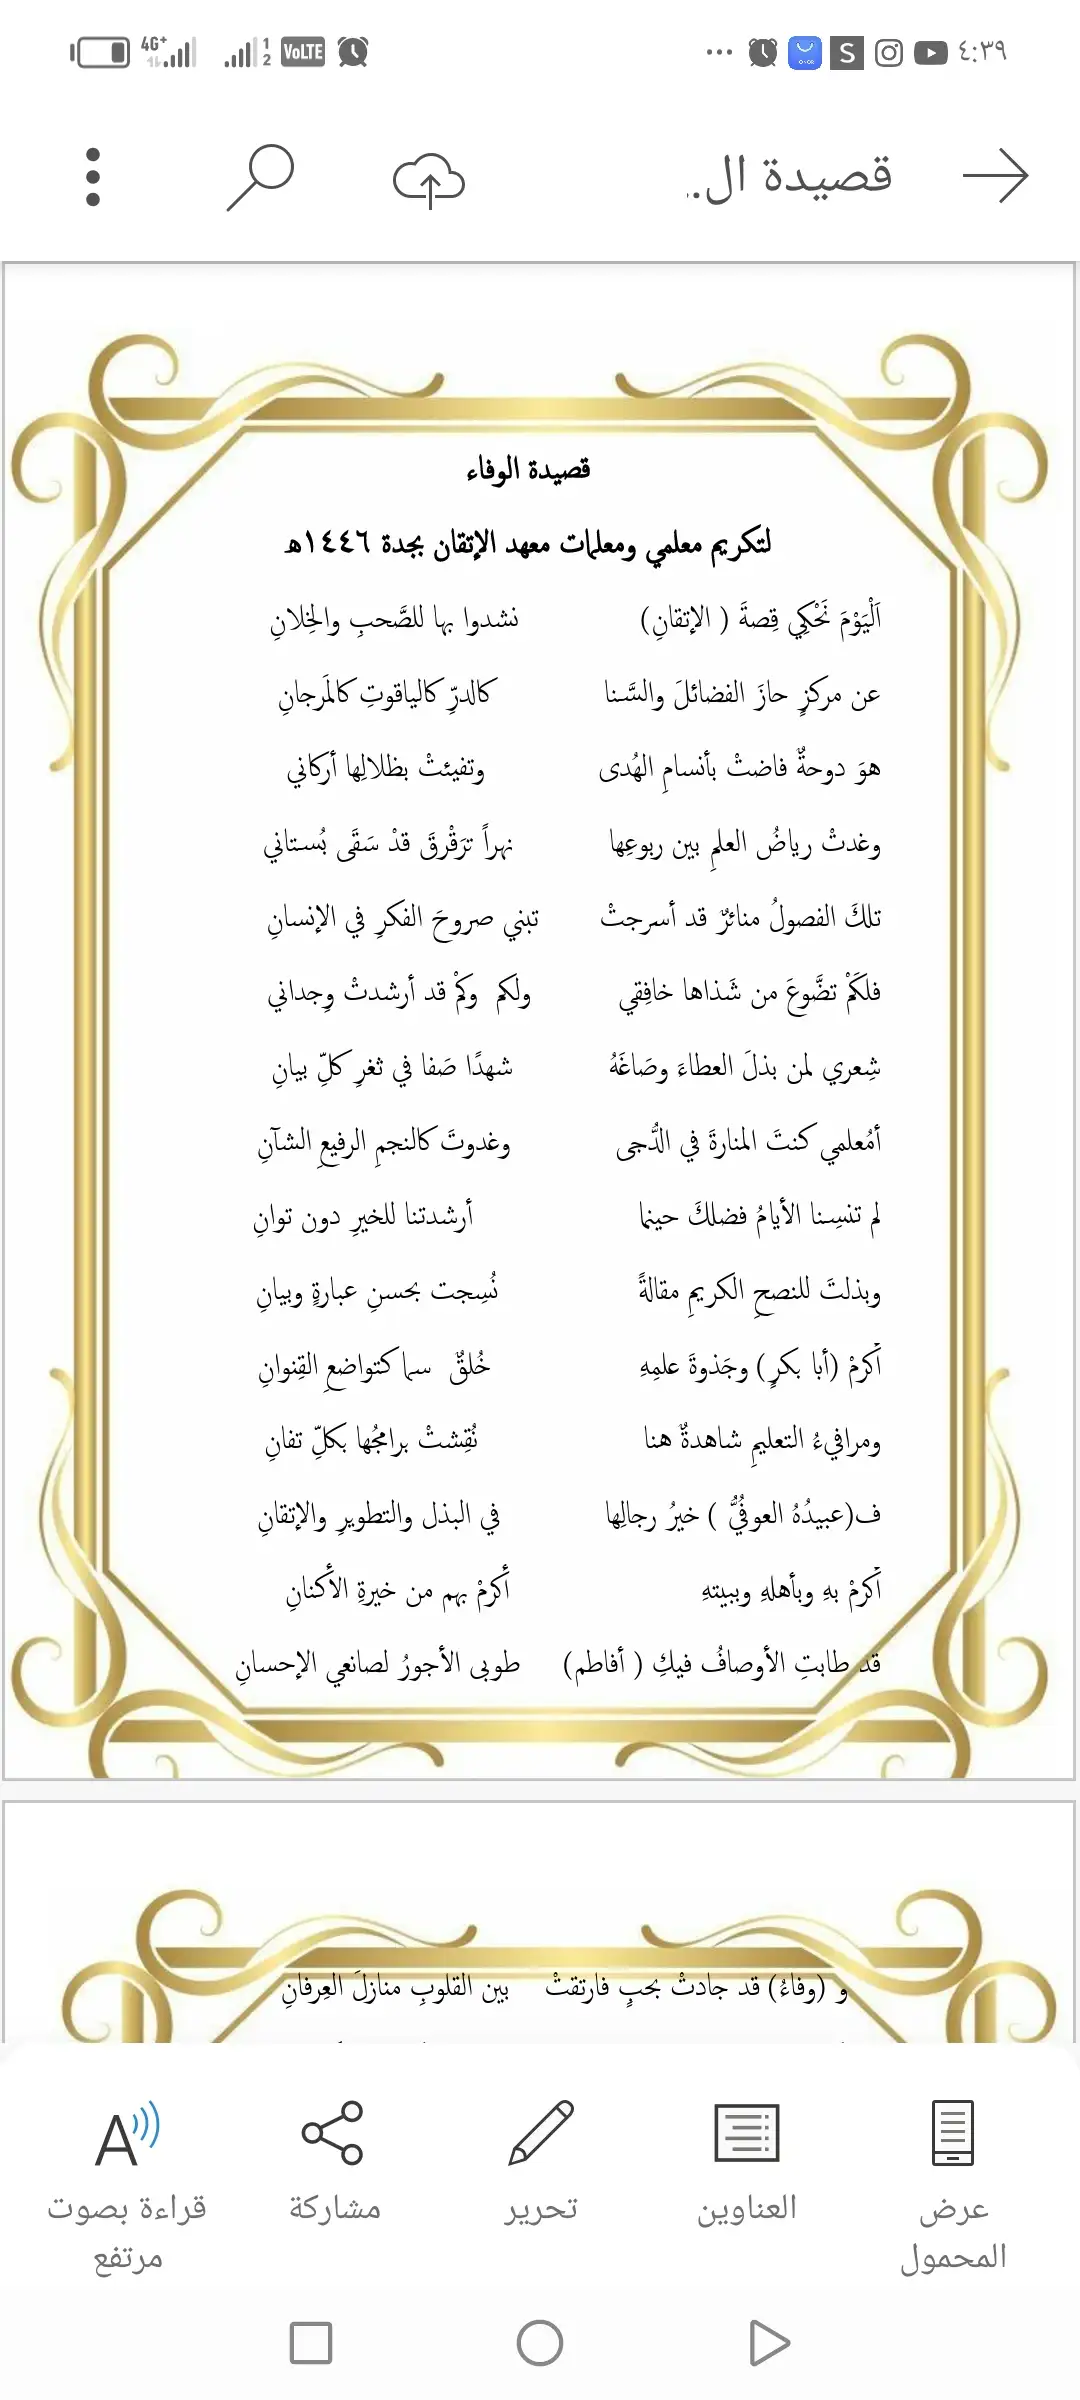 ٤:٣٩
VoLTE
4G+
1
2
S
قصيدة ال..
قصيدة الوفاء
لتكريم معلمي ومعلمات معهد الإتقان بجدة ١٤٤٦هـ
اَلْيَوْمَ نَحْكِي قِصةَ ( الإتقانِ) نشدوا بها للصَّحبِ والخِلانِ
عن مركزٍ حازَ الفضائلَ والسَّنا كالدرِّ كالياقوتِ كالمَرجانِ
هوَ دوحةٌ فاضتْ بأنسامِ الهُدى وتفيئتْ بظلالِها أركاني
وغدتْ رياضُ العلمِ بين ربوعِها نهراً ترَقْرقَ قدْ سَقَى بُستاني
تلكَ الفصولُ منائرٌ قد أسرجتْ تبني صروحَ الفكرِ في الإنسانِ
فلكَمْ تضَّوعَ من شَذاها خافِقي ولكم وكمْ قد أرشدتْ وِجداني
شِعري لمن بذلَ العطاءَ وصَاغَهُ شهدًا صَفا في ثغرِ كلِّ بيانِ
أمُعلمي كنتَ المنارةَ في الدُّجى وغدوتَ كالنجمِ الرفيعِ الشآنِ
لم تنسِنا الأيامُ فضلكَ حينما أرشدتنا للخيرِ دون توانِ
وبذلتَ للنصحِ الكريمِ مقالةً نُسِجت بحسنِ عبارةٍ وبيانِ
أكرمْ (أبا بكرٍ) وجَذوةَ علمِهِ خُلقٌ سما كتواضعِ القِنوانِ
ومرافيءُ التعليمِ شاهدةٌ هنا نُقِشتْ برامجُها بكلِّ تفانِ
ف(عبيدُهُ العوفُيُّ ) خيرُ رجالِها في البذل والتطويرِ والإتقانِ
أكرمْ بهِ وبأهلهِ وببيتهِ أكرمْ بهم من خيرةِ الأكنانِ
قد طابتِ الأوصافُ فيكِ ( أفاطم) طوبى الأجورُ لصانعي الإحسانِ
و (وفاءُ) قد جادتْ بحبٍ فارتقتْ بين القلوبِ منازلَ العِرفانِ
عرض المحمول
العناوين
تحرير
مشاركة
قراءة بصوت مرتفع